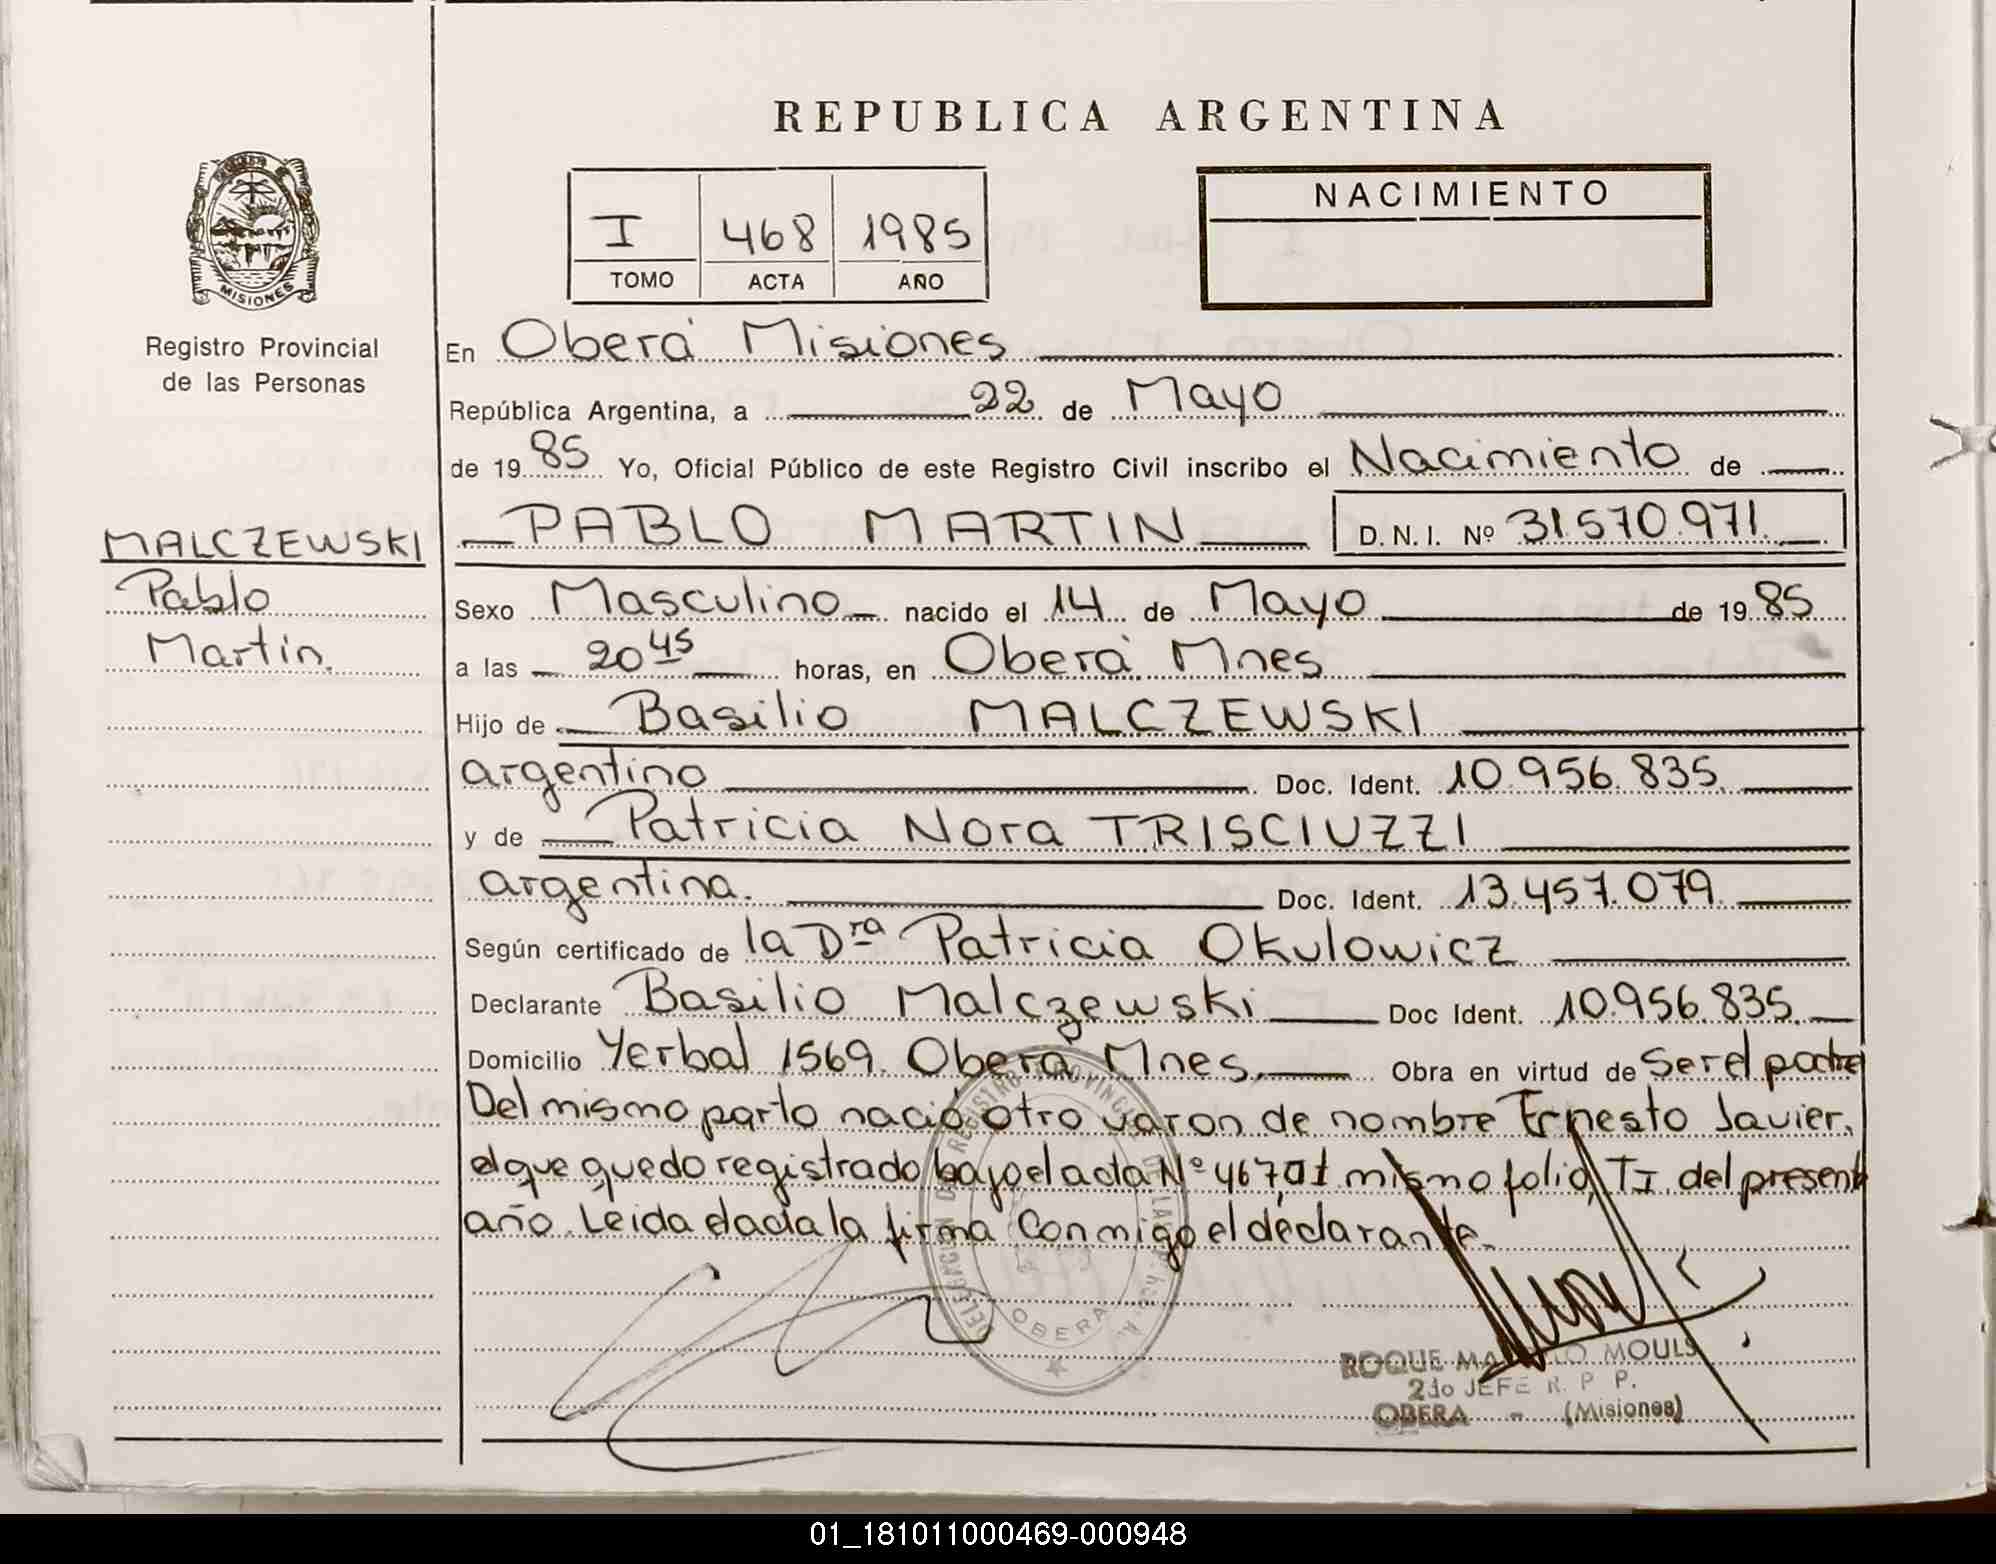 REPUBLICA ARGENTINA
I 468 1985
TOMO ACTA AÑO
NACIMIENTO
MISIONES
Registro Provincial
de las Personas
MALCZEWSKI
Pablo
Martin.
En Oberá Misiones
República Argentina, a 22 de Mayo
de 1985 Yo, Oficial Público de este Registro Civil inscribo el Nacimiento de
PABLO MARTIN D.N.I. Nº 31.570.971
Sexo Masculino nacido el 14 de Mayo de 1985
a las 20 45 horas, en Oberá Mnes
Hijo de Basilio MALCZEWSKI
argentino Doc. Ident. 10.956.835.
y de Patricia Nora TRISCIUZZI
argentina. Doc. Ident. 13.457.079.
Según certificado de la Dra Patricia Okulowicz
Declarante Basilio Malczewski Doc Ident. 10.956.835.
Domicilio Yerbal 1569. Oberá Mnes. Obra en virtud de Ser el padre
Del mismo parto nació otro varon de nombre Ernesto Javier,
el que quedo registrado bajo el acta Nº 467, mismo folio, TI. del present
año. Leida dada la firma Conmigo el déclarante.
OBERA
ROQUE MOULS
2do JEFE R. P. P.
OBERA - (Misiones)
01_181011000469-000948